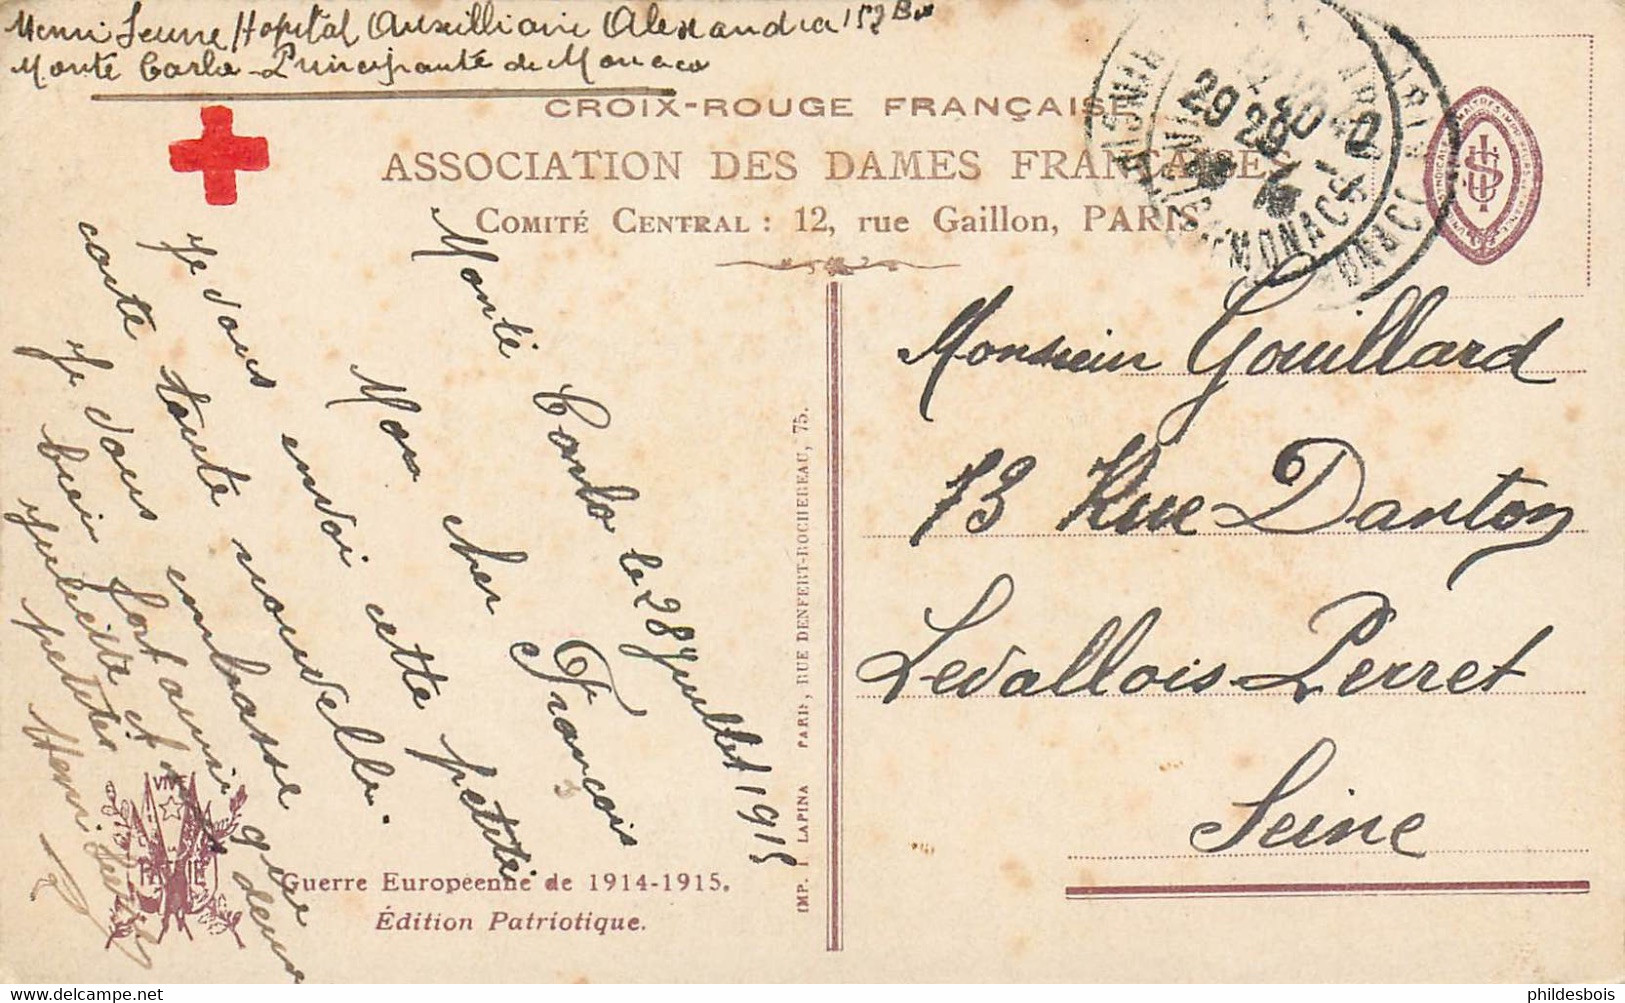 Henri Jeune Hopital Auxilliaire Alexandra 152 Bis
Monte Carlo - Principauté de Monaco
CROIX-ROUGE FRANÇAISE
ASSOCIATION DES DAMES FRANÇAISES
COMITÉ CENTRAL : 12, rue Gaillon, PARIS
MONACO
MONACO
Monté Carlo le 28 Juillet 1915
Mon cher François
Je vous envoi cette petite
carte toute nouvelle.
Je vous embrasse
bien fort ainsi que
Juliette et
petites
Henri Jeune
VIVE
LA
PATRIE
Guerre Européenne de 1914-1915.
Édition Patriotique.
IMP. I. LAPINA PARIS, RUE DENFERT-ROCHEREAU, 75.
Monsieur Gouillard
73 Rue Danton
Levallois-Perret
Seine
phildesbois